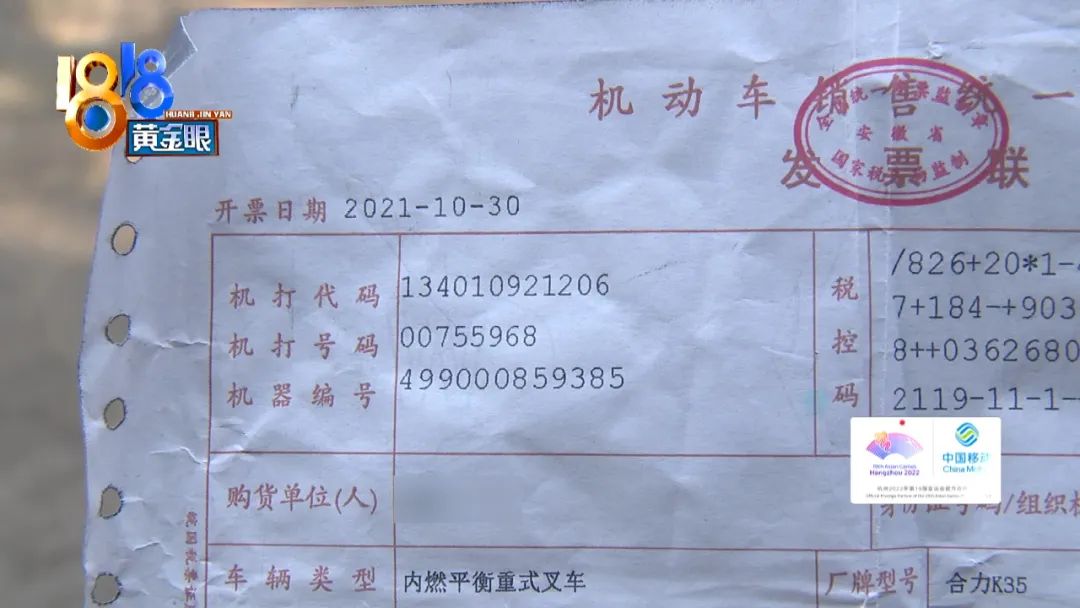 1818
HUANG JIN YAN
黄金眼
机动车销售统一
发票联
全国统一发票监制章
安徽省
国家税务局监制
开票日期 2021-10-30
机打代码 134010921206
机打号码 00755968
机器编号 499000859385
税控码
/826+20*1-
7+184-+903
8++0362680
2119-11-1-
19th Asian Games
Hangzhou 2022
中国移动
China Mo
杭州2022年第19届亚运会官方合作伙伴
购货单位(人)
身份证号码/组织机
车辆类型 内燃平衡重式叉车
厂牌型号 合力K35